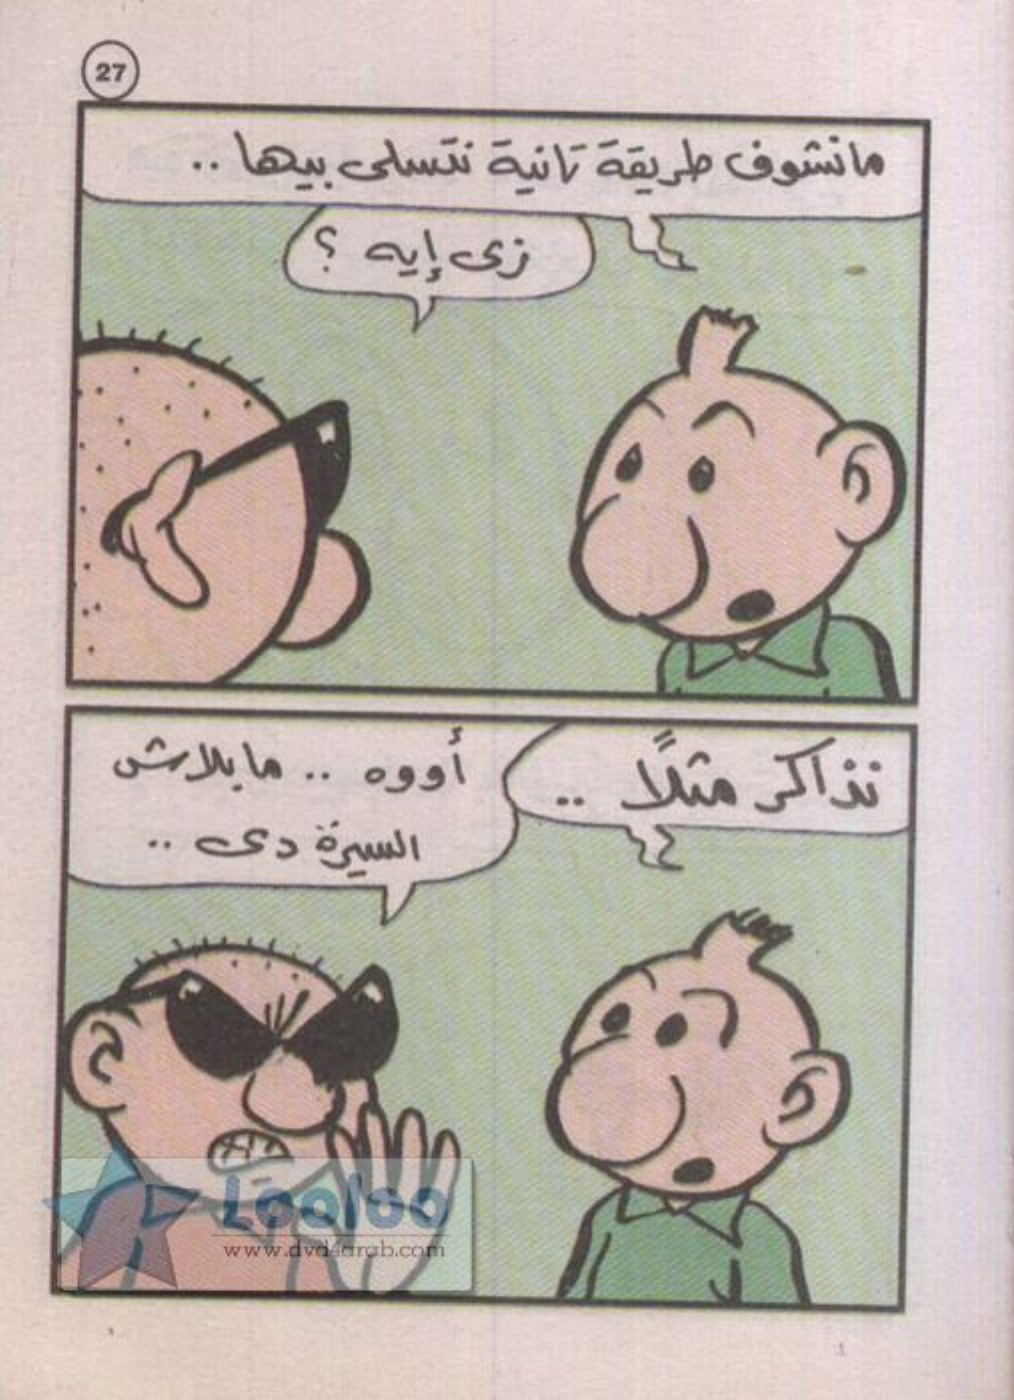 27
ما نشوف طريقة تانية نتسلى بيها ..
زى إيه ؟
نذاكر مثلًا ..
أووه .. ما بلاش
السيرة دى ..
Looloo
www.dvd4arab.com